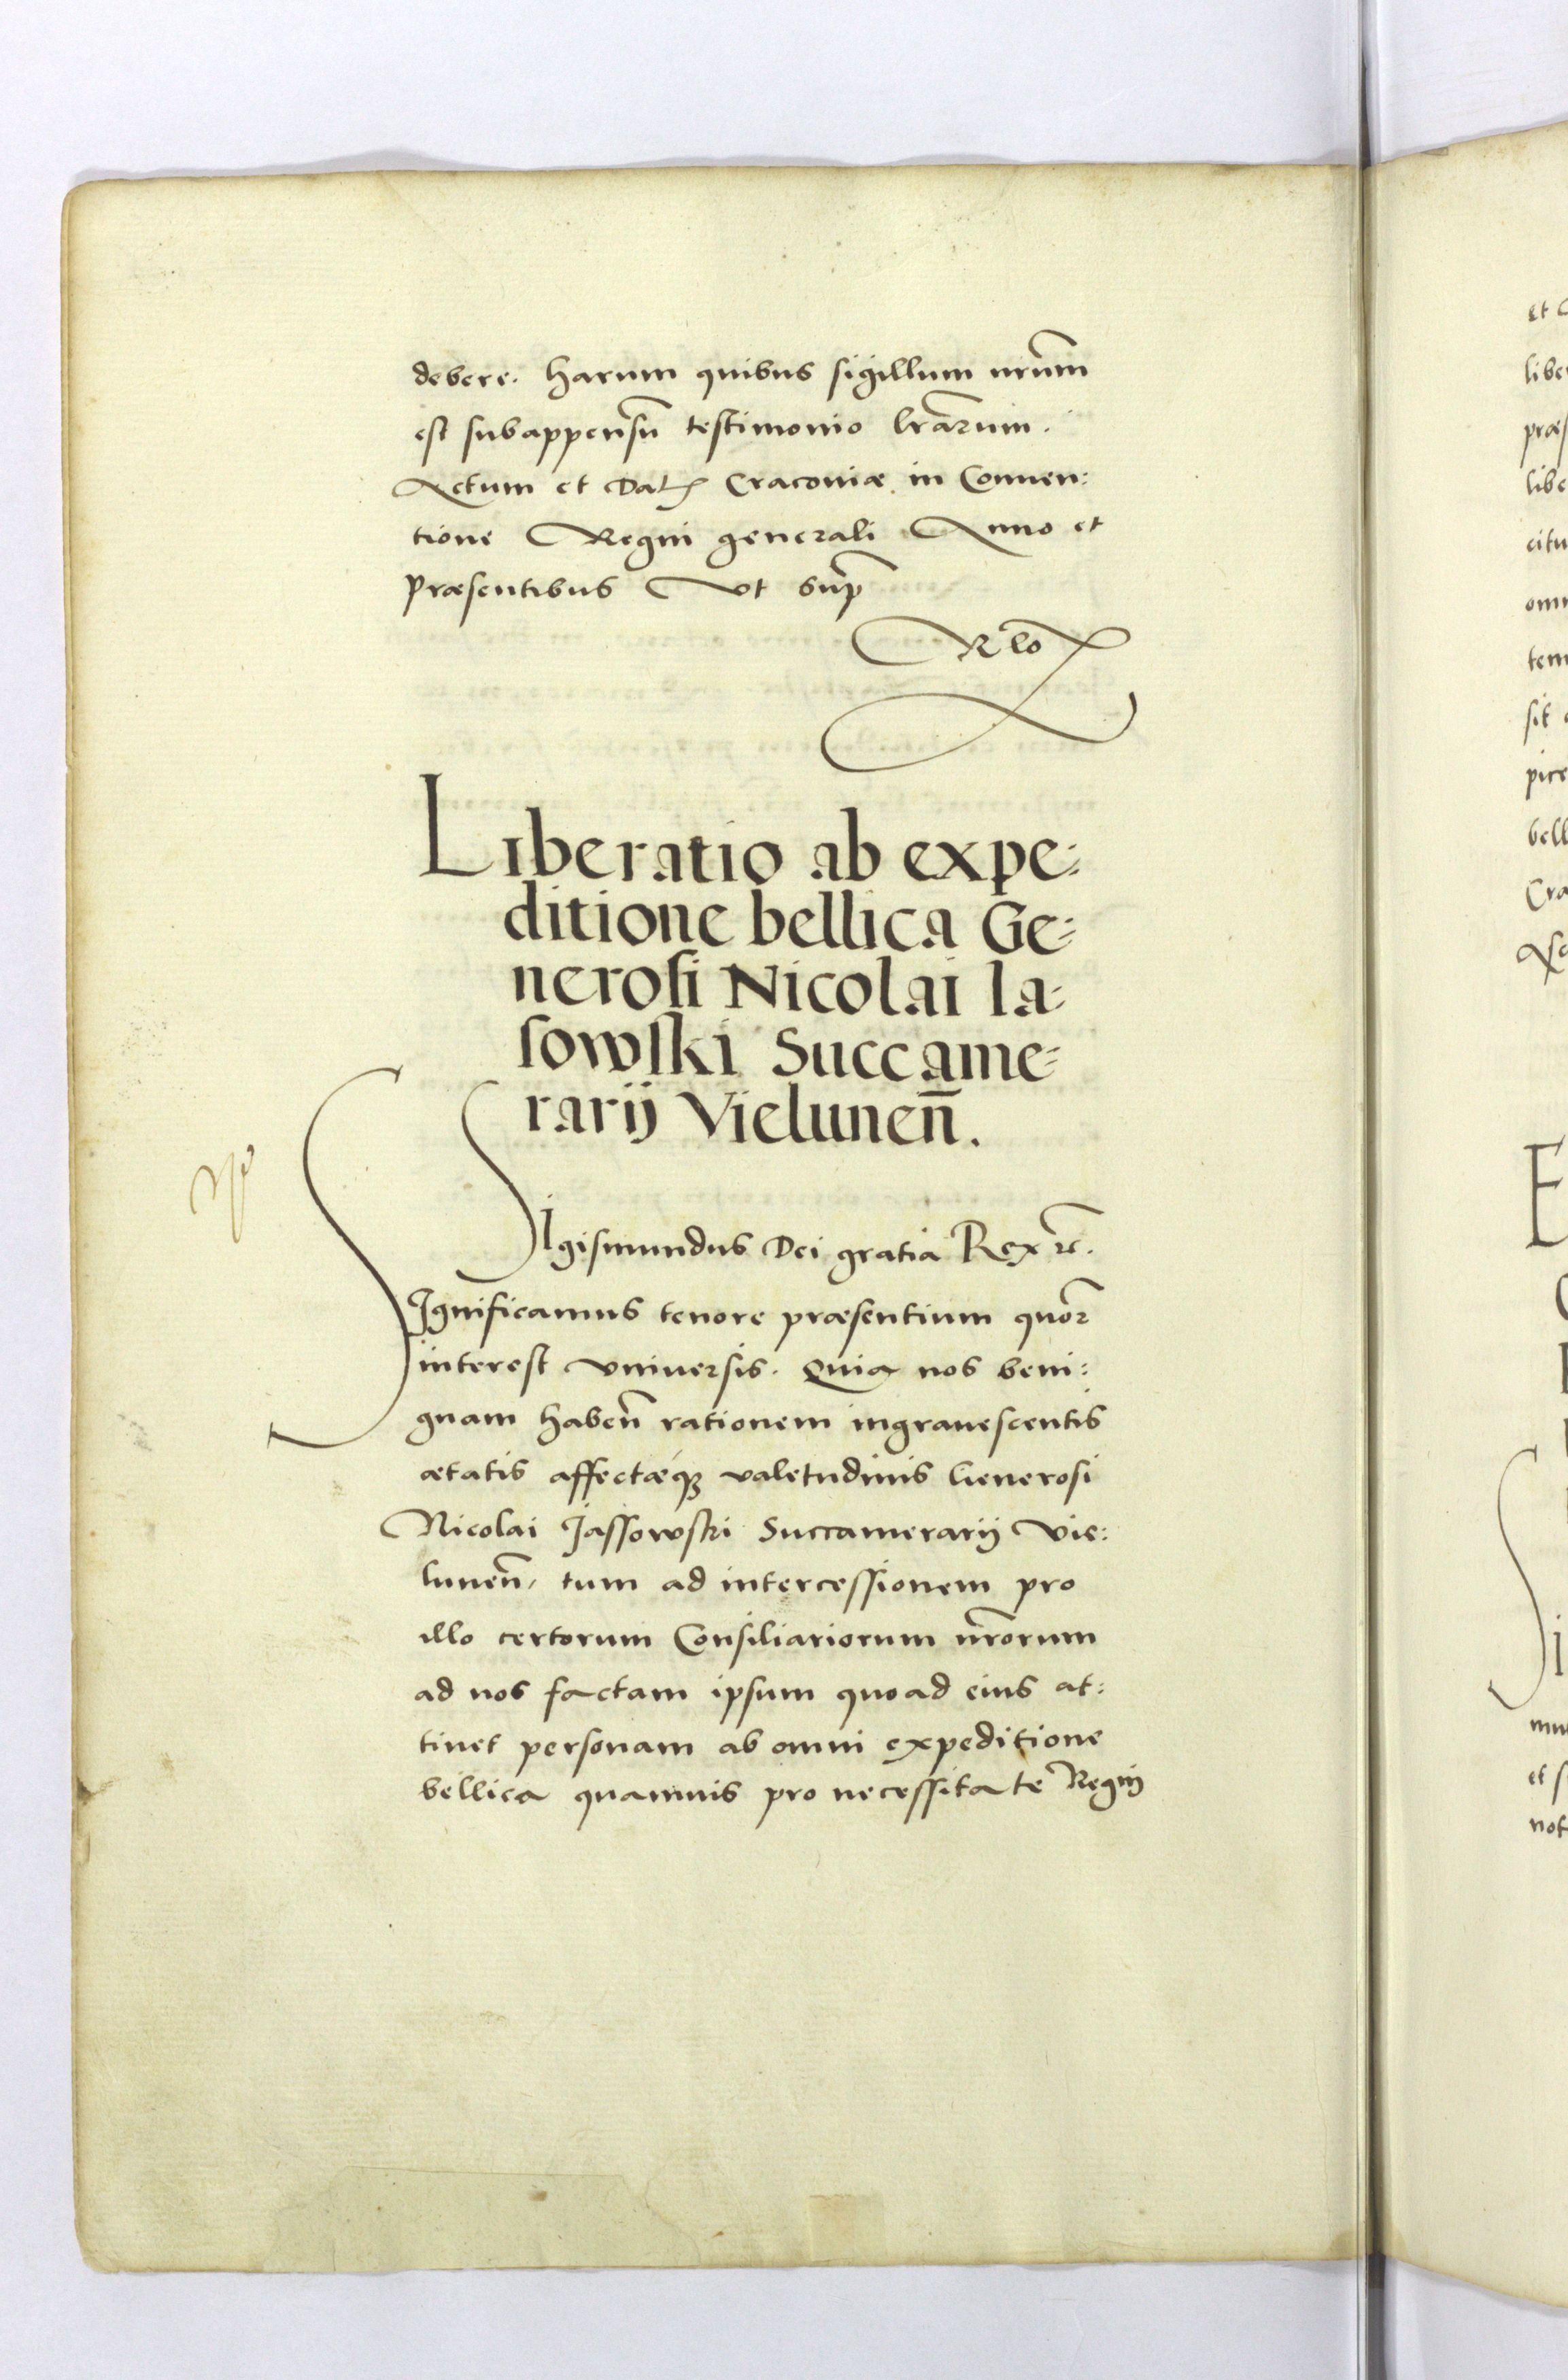 debere. Harum quibus sigillum nrum̄
est subappensū testimonio lrārum.
Actum et Dat Cracoviæ in Conuen:
tione Regni generali Anno et
Præsentibus Vt sup̄
Liberatio ab expe:
ditione bellica Ge:
nerosi Nicolai Ia:
sowski Succame:
rarij Vielunen̄.
SIgismundus Dei gratia Rex
SIgnificamus tenore præsentium quor̄
interest vniuersis. Quia nos beni:
gnam haben̄ rationem ingrauescentis
ætatis affectæq; valetudinis Generosi
Nicolai Jassowski Succamerarij Vie:
lunen̄, tum ad intercessionem pro
illo certorum Consiliariorum nr̄orum
ad nos factam ipsum quo ad eius at:
tinet personam ab omni expeditione
bellica quamuis pro necessitate Regni
et
libe
præs
libe
citu
omn
tem
sit
pice
bell
Cra
E
mu
et s
not